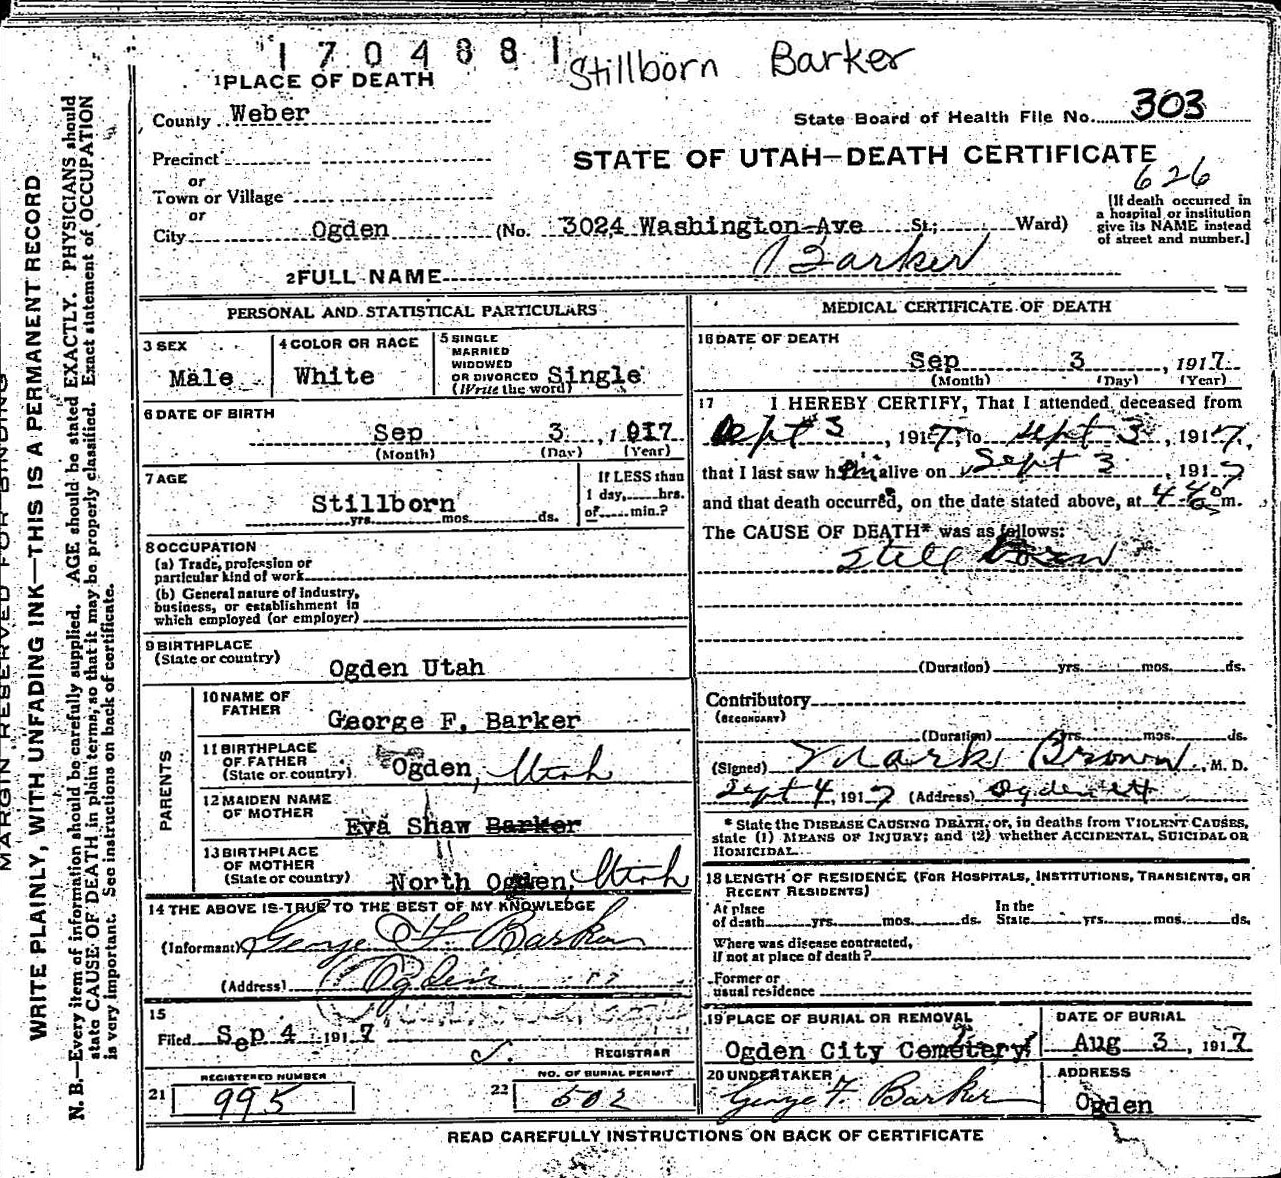 1704881
Stillborn Barker
1 PLACE OF DEATH
County Weber
State Board of Health File No. 303
Precinct
STATE OF UTAH—DEATH CERTIFICATE
626
or
Town or Village
or
City Ogden (No. 3024 Washington Ave St.; Ward)
[If death occurred in
a hospital or institution
give its NAME instead
of street and number.]
2 FULL NAME Barker
PERSONAL AND STATISTICAL PARTICULARS
3 SEX
Male
4 COLOR OR RACE
White
5 SINGLE
MARRIED
WIDOWED
OR DIVORCED Single
(Write the word)
6 DATE OF BIRTH
Sep 3, 1917
(Month) (Day) (Year)
7 AGE
Stillborn
yrs. mos. ds.
If LESS than
1 day, hrs.
or min.?
8 OCCUPATION
(a) Trade, profession or
particular kind of work
(b) General nature of industry,
business, or establishment in
which employed (or employer)
9 BIRTHPLACE
(State or country) Ogden Utah
PARENTS
10 NAME OF
FATHER George F. Barker
11 BIRTHPLACE
OF FATHER
(State or country) Ogden, Utah
12 MAIDEN NAME
OF MOTHER Eva Shaw Barker
13 BIRTHPLACE
OF MOTHER
(State or country) North Ogden, Utah
14 THE ABOVE IS TRUE TO THE BEST OF MY KNOWLEDGE
(Informant) George F Barker
(Address) Ogden
15
Filed Sep 4 1917
REGISTRAR
REGISTERED NUMBER
21 995
NO. OF BURIAL PERMIT
22 502
MEDICAL CERTIFICATE OF DEATH
16 DATE OF DEATH
Sep 3, 1917
(Month) (Day) (Year)
17 I HEREBY CERTIFY, That I attended deceased from
Sept 3, 1917, to Sept 3, 1917,
that I last saw him alive on Sept 3, 1917
and that death occurred, on the date stated above, at m.
The CAUSE OF DEATH* was as follows:
Still born
(Duration) yrs. mos. ds.
Contributory
(SECONDARY)
(Duration) yrs. mos. ds.
(Signed) Mark Brown, M. D.
Sept 4, 1917 (Address) Ogden Ut
* State the DISEASE CAUSING DEATH, or, in deaths from VIOLENT CAUSES,
state (1) MEANS OF INJURY; and (2) whether ACCIDENTAL, SUICIDAL OR
HOMICIDAL.
18 LENGTH OF RESIDENCE (FOR HOSPITALS, INSTITUTIONS, TRANSIENTS, OR
RECENT RESIDENTS)
At place
of death yrs. mos. ds.
In the
State yrs. mos. ds.
Where was disease contracted,
if not at place of death?
Former or
usual residence
19 PLACE OF BURIAL OR REMOVAL
Ogden City Cemetery
DATE OF BURIAL
Aug 3, 1917
20 UNDERTAKER
George F. Barker
ADDRESS
Ogden
READ CAREFULLY INSTRUCTIONS ON BACK OF CERTIFICATE
MARGIN RESERVED FOR BINDING
WRITE PLAINLY, WITH UNFADING INK—THIS IS A PERMANENT RECORD
N. B.—Every item of information should be carefully supplied. AGE should be stated EXACTLY. PHYSICIANS should
state CAUSE OF DEATH in plain terms, so that it may be properly classified. Exact statement of OCCUPATION
is very important. See instructions on back of certificate.